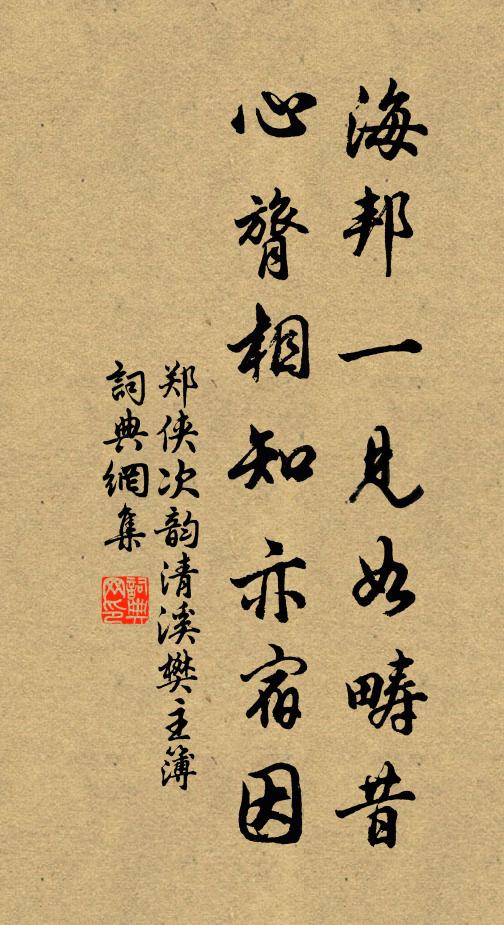 海邦一見如疇昔
心膂相知亦宿因
郑侠次韵清溪樊主簿
詞典網集
詞典網印